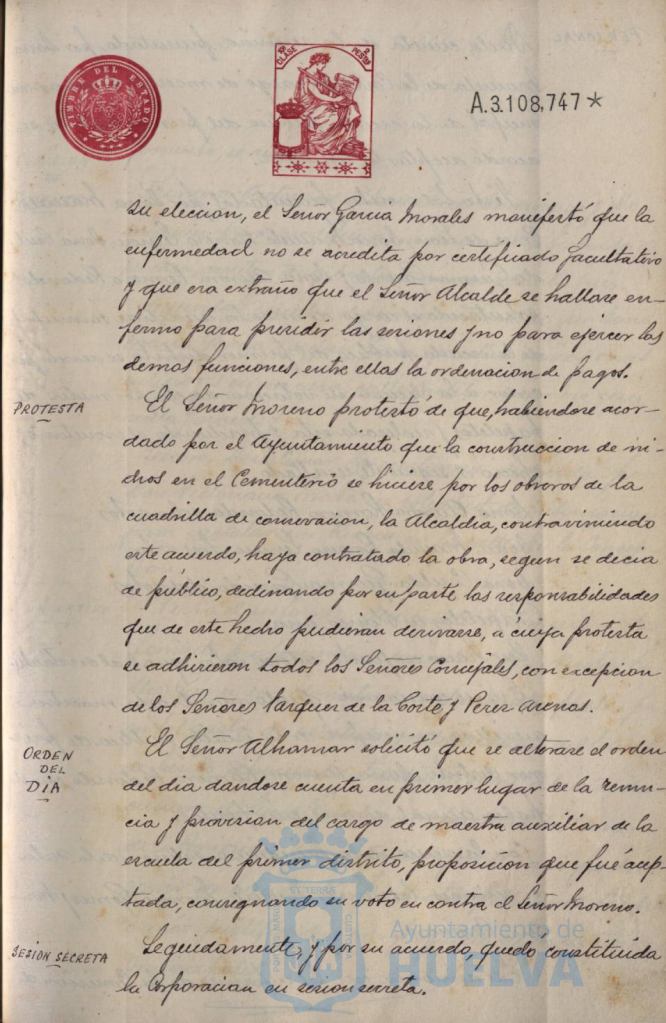 TIMBRE DEL ESTADO
10ª CLASE
2 PESETAS
A.3.108,747*
su eleccion, el Señor Garcia Morales manifestó que la
enfermedad no se acredita por certificado facultativo
y que era extraño que el Señor Alcalde se hallase en-
fermo para presidir las sesiones y no para ejercer las
demas funciones, entre ellas la ordenacion de pagos.
PROTESTA
El Señor Moreno protestó de que, habiendose acor-
dado por el Ayuntamiento que la construccion de ni-
chos en el Cementerio se hiciese por los obreros de la
cuadrilla de conservacion, la Alcaldia, contraviniendo
este acuerdo, haya contratado la obra, segun se decia
de público, declinando por su parte las responsabilidades
que de este hecho pudieran derivarse, á cuya protesta
se adhirieron todos los Señores Concejales, con excepcion
de los Señores Vazquez de la Corte y Perez Arenas.
ORDEN
DEL
DIA
El Señor Alhamar solicitó que se alterase el orden
del dia dandose cuenta en primer lugar de la renun-
cia y provision del cargo de maestra auxiliar de la
escuela del primer distrito, proposicion que fué acep-
tada, consignando su voto en contra el Señor Moreno.
SESION SECRETA
Seguidamente, y por su acuerdo, quedó constituida
la Corporacion en sesion secreta.
Ayuntamiento de
HUELVA